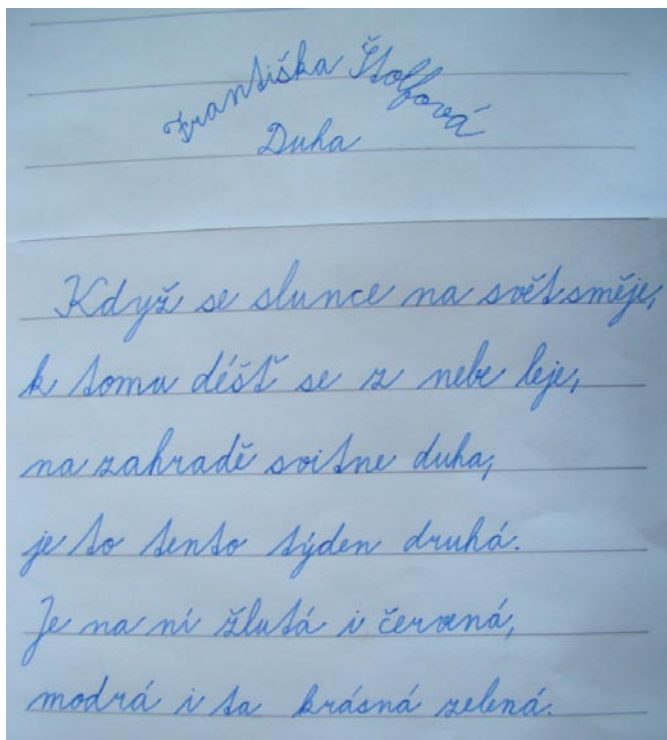 Františka Štolfová
Duha
Když se slunce na svět směje,
k tomu déšť se z nebe leje,
na zahradě svitne duha,
je to tento týden druhá.
Je na ní žlutá i červená,
modrá i ta krásná zelená.